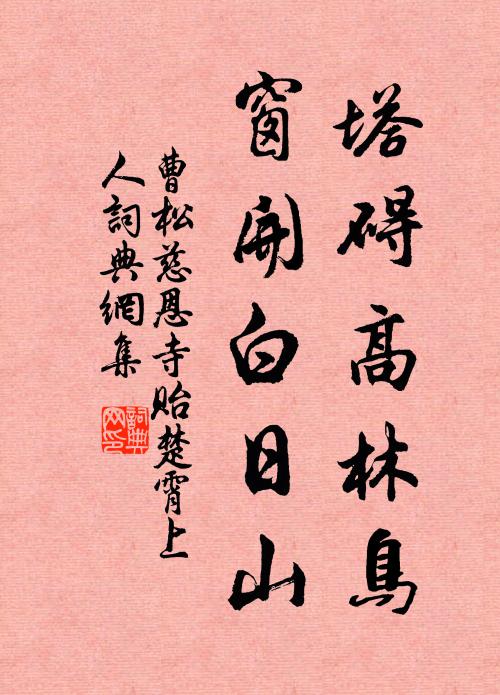 塔碍高林鳥
窗開白日山
曹松慈恩寺貽楚霄上
人詞典網集
詞典
网印